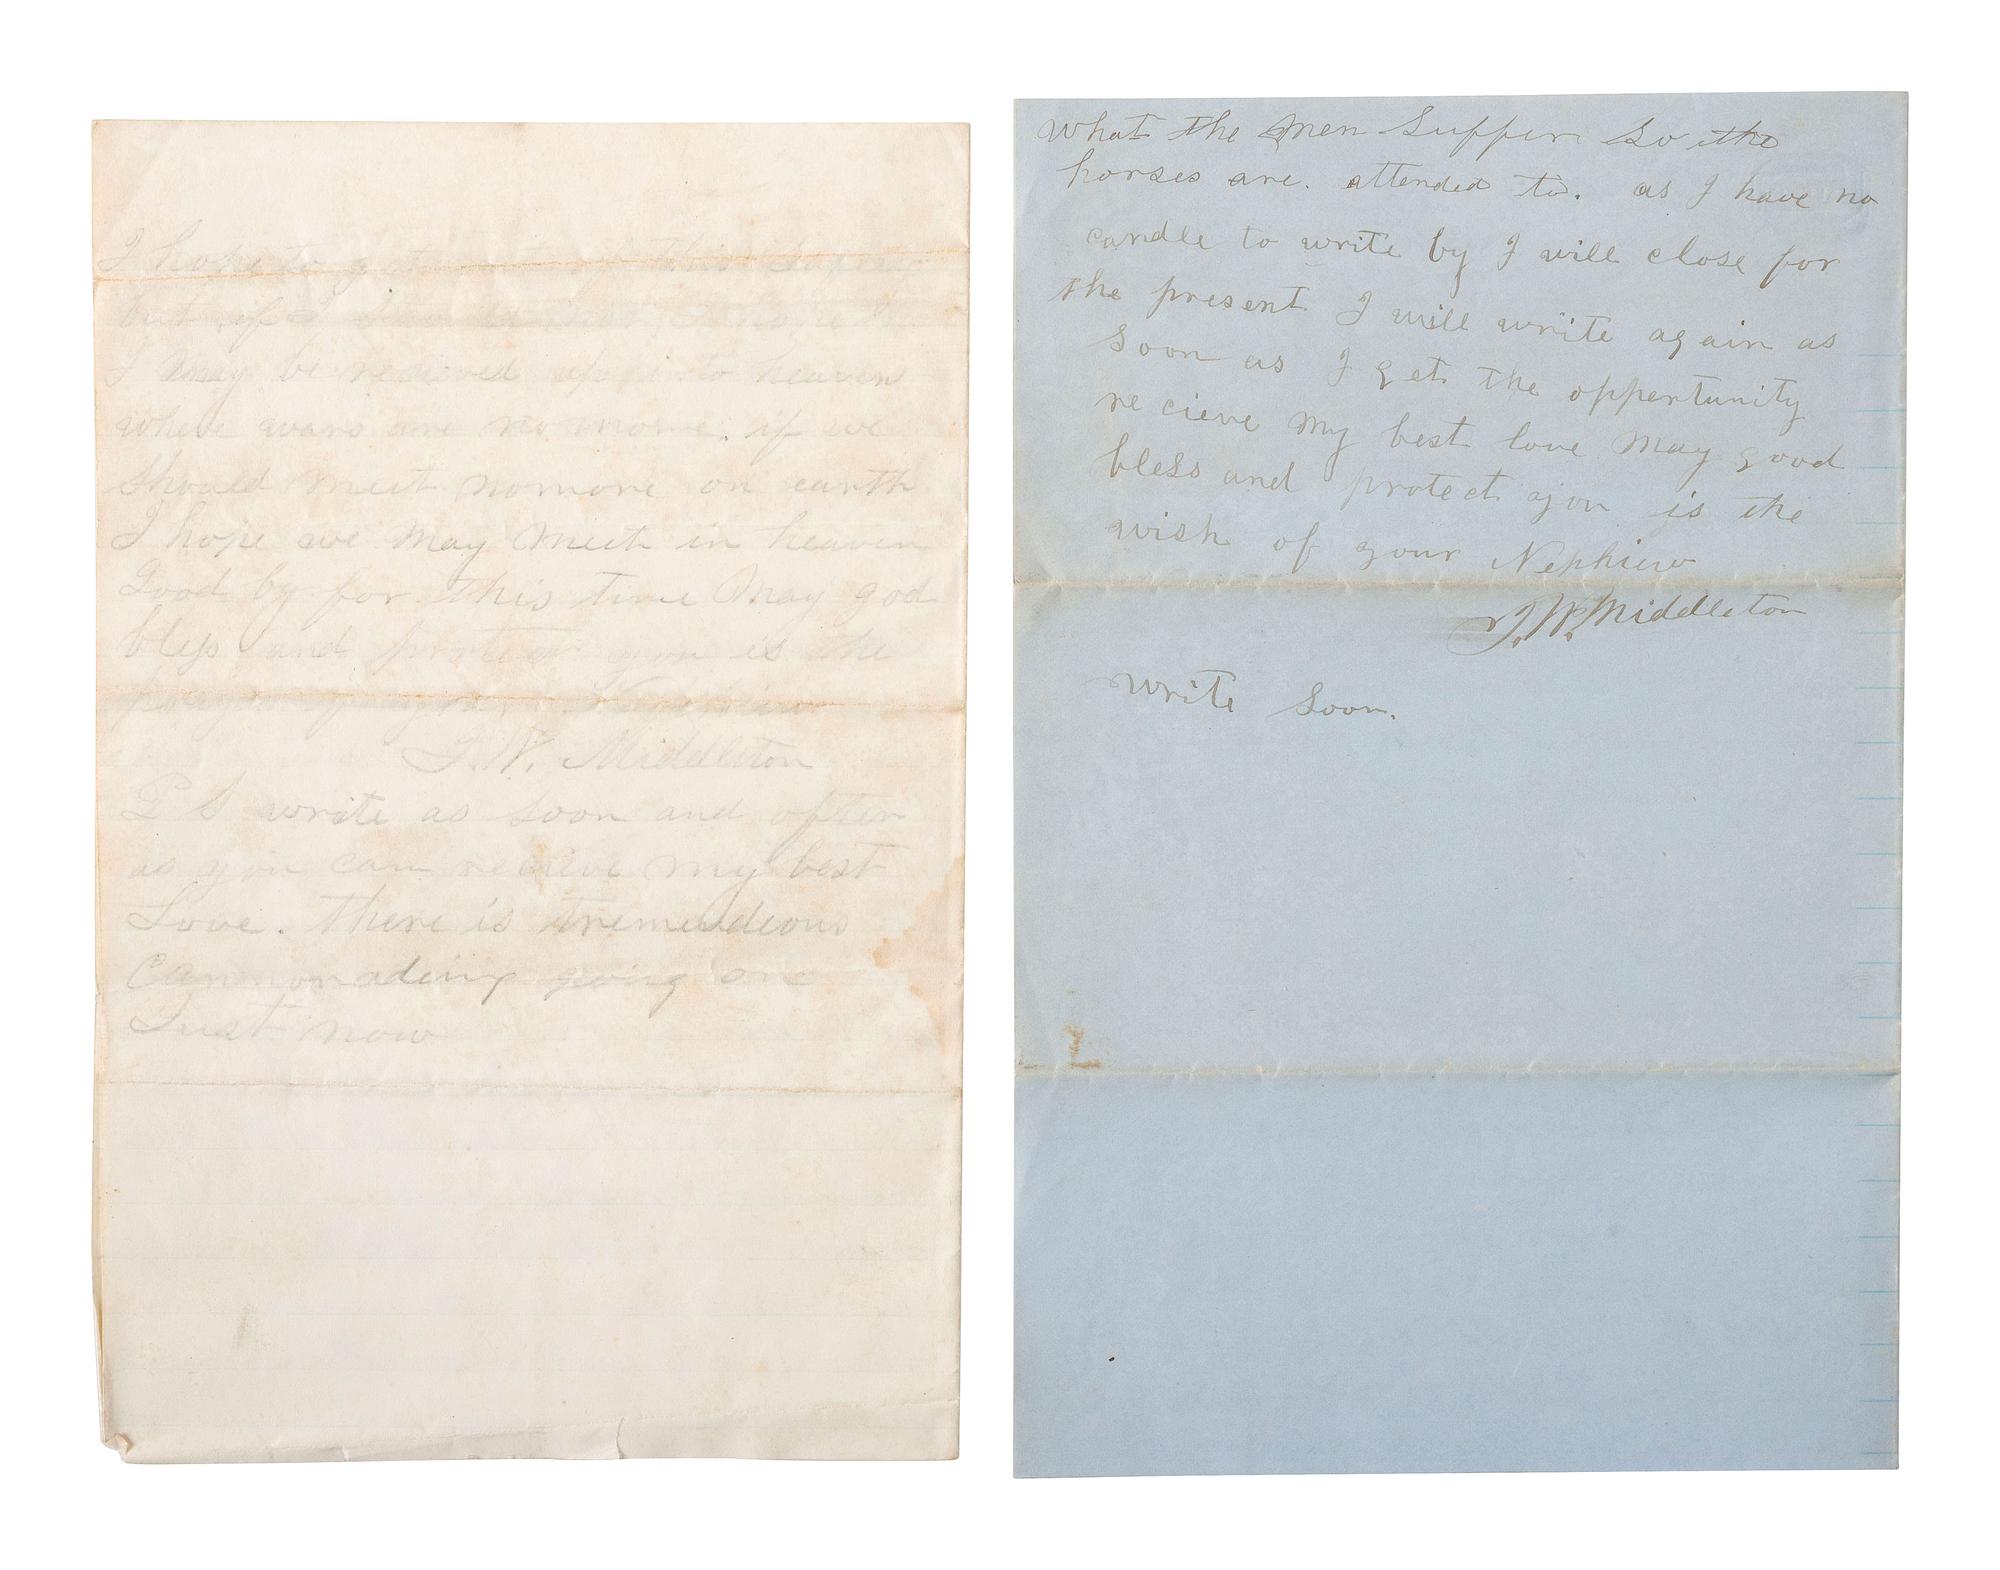 I hope to get out of this safely
but if I should not I hope
I may be recieved up into heaven
where wars are no more. if we
should meet nomore on earth
I hope we may meet in heaven
Good by for this time May god
bless and protect you is the
prayer of your Nephiew
J. W. Middleton
P S write as soon and often
as you can recieve my best
Love. there is tremendeous
Cannonading going one
Just now
What the men Suffer So the
horses are. attended to. as I have no
candle to write by I will close for
the present I will write again as
Soon as I get the oppertunity
re cieve my best love May good
bless and protect you is the
wish of your Nephiew
J. W. Middleton
Write Soon.